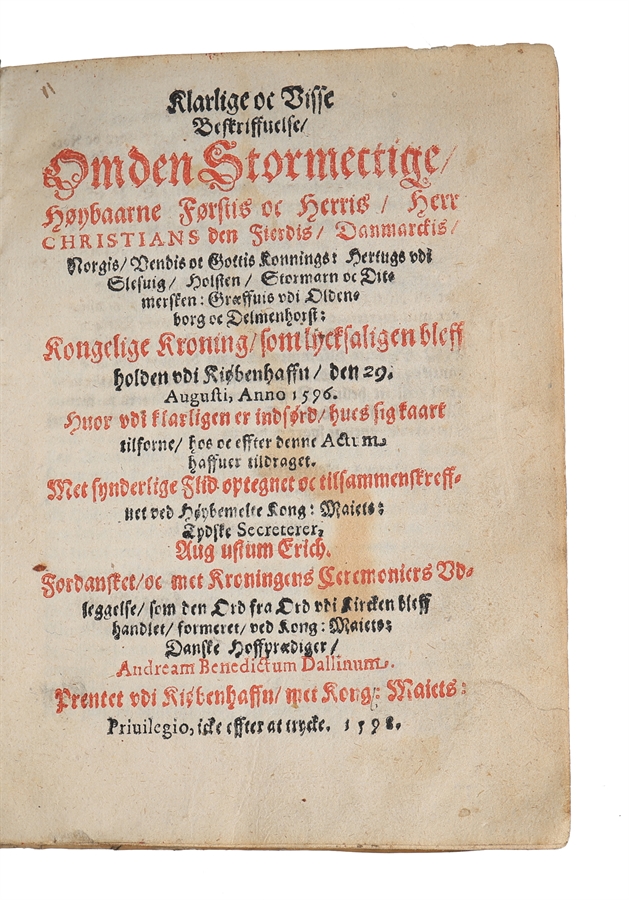 11
Klarlige oc Visse
Beskriffuelse/
Om den Stormectige/
Høybaarne Førstis oc Herris / Herr
CHRISTIANS den Fierdis / Danmarckis /
Norgis/ Vendis oc Gottis Konnings: Hertugs vdi
Slesuig / Holsten / Stormarn oc Dit-
mersken: Græffuis vdi Olden-
borg oc Delmenhorst:
Kongelige Kroning/ som lycksaligen bleff
holden vdi Kiøbenhaffn/ den 29.
Augusti, Anno 1596.
Huor vdi klarligen er indførd/ hues sig kaart
tilforne/ hos oc effter denne Actum
haffuer tildraget.
Met synderlige Flid optegnet oc tilsammenskreff-
uet ved Høybemelte Kong: Maiets:
Tydske Secreterer,
Aug ustum Erich.
Fordansket/ oc met Kroningens Ceremoniers Vd-
leggelse/ som den Ord fra Ord vdi Kircken bleff
handlet/ formeret/ ved Kong: Maiets:
Danske Hoffprædiger/
Andream Benedictum Dallinum.
Prentet vdi Kiøbenhaffn/ met Kong: Maiets:
Priuilegio, icke effter at trycke. 1598.